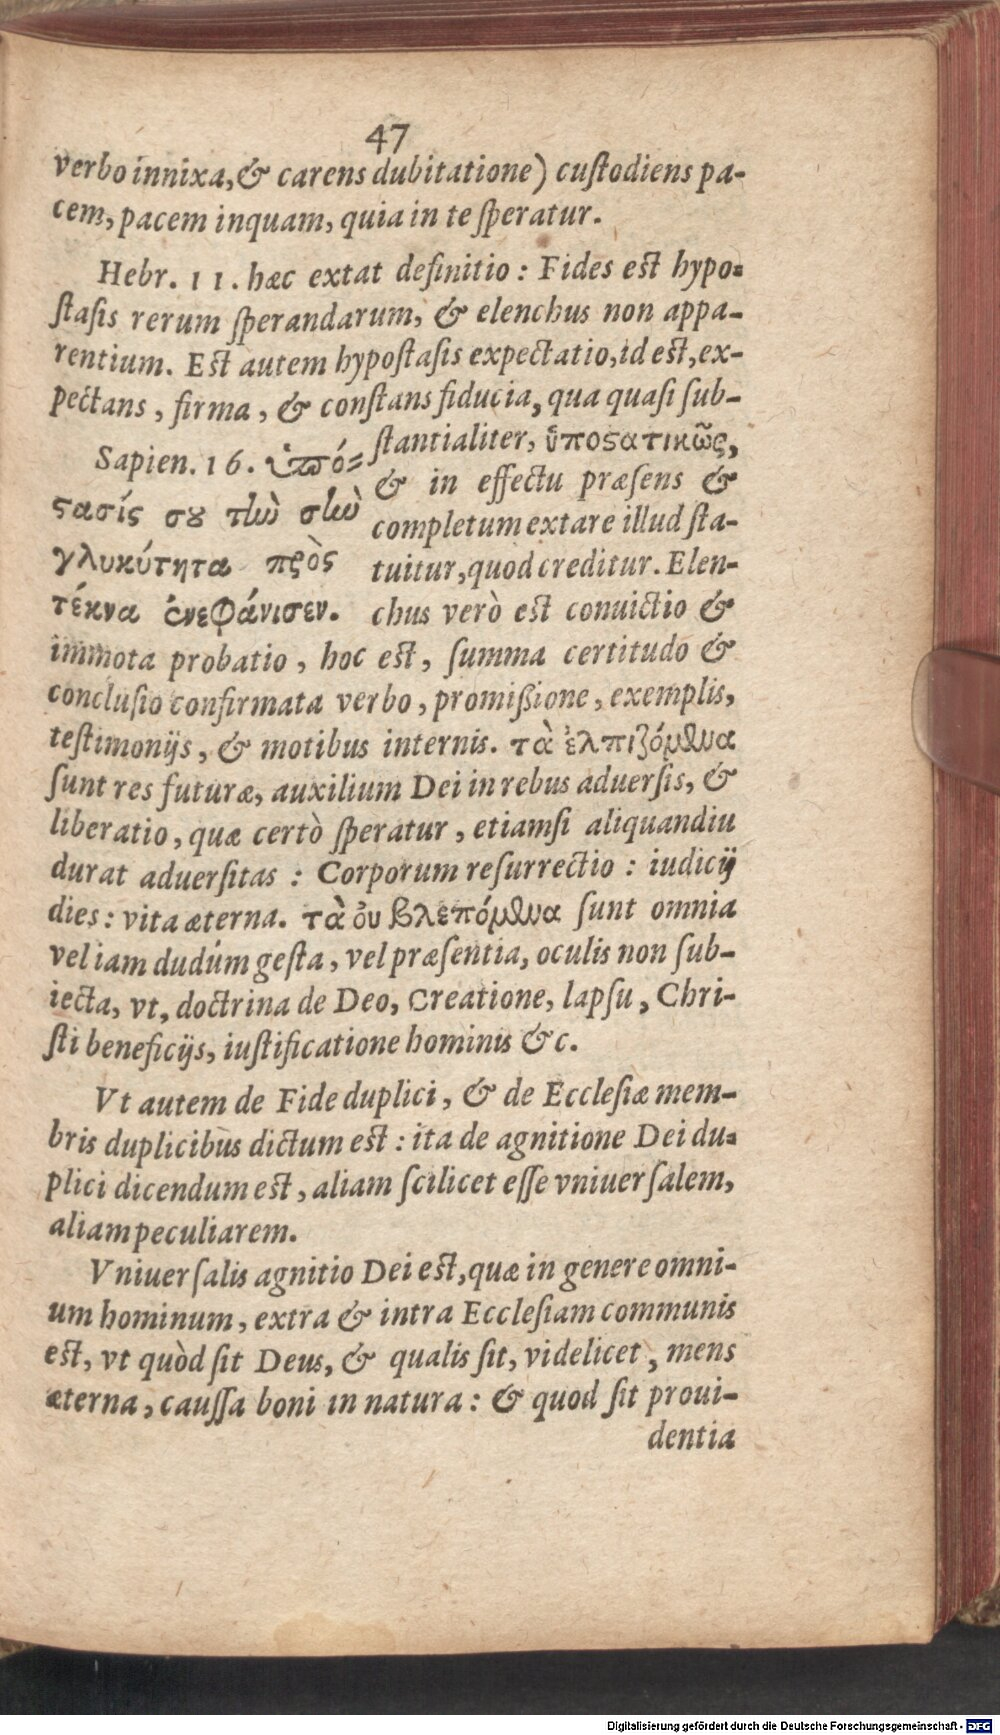 47
verbo innixa, & carens dubitatione) cuſtodiens pa-
cem, pacem inquam, quia in te ſperatur.
Hebr. 11. hæc extat definitio: Fides est hypo-
ſtaſis rerum ſperandarum, & elenchus non appa-
rentium. Est autem hypoſtaſis expectatio, id est, ex-
pectans, firma, & conſtans fiducia, qua quaſi ſub-
ſtantialiter, ὑποϛατικῶς,
& in effectu præſens &
completum extare illud ſta-
tuitur, quòd creditur. Elen-
chus verò est conuictio &
Sapien. 16. ὑπό-
ϛασίς σου τὴν σὴν
γλυκύτητα πρὸς
τέκνα ἐνεφάνισεν.
immota probatio, hoc est, ſumma certitudo &
concluſio confirmata verbo, promißione, exemplis,
teſtimonijs, & motibus internis. τὰ ἐλπιζόμενα
ſunt res futuræ, auxilium Dei in rebus aduerſis, &
liberatio, quæ certò ſperatur, etiamſi aliquandiu
durat aduerſitas: Corporum reſurrectio: iudicij
dies: vita æterna. τὰ οὐ βλεπόμενα ſunt omnia
vel iam dudùm geſta, vel præſentia, oculis non ſub-
iecta, vt, doctrina de Deo, Creatione, lapſu, Chri-
ſti beneficijs, iuſtificatione hominis &c.
Vt autem de Fide duplici, & de Eccleſiæ mem-
bris duplicibus dictum est: ita de agnitione Dei du-
plici dicendum est, aliam ſcilicet eſſe vniuerſalem,
aliam peculiarem.
Vniuerſalis agnitio Dei est, quæ in genere omni-
um hominum, extra & intra Eccleſiam communis
est, vt quòd ſit Deus, & qualis ſit, videlicet, mens
æterna, cauſſa boni in natura: & quod ſit proui-
dentia
Digitalisierung gefördert durch die Deutsche Forschungsgemeinschaft - DFG